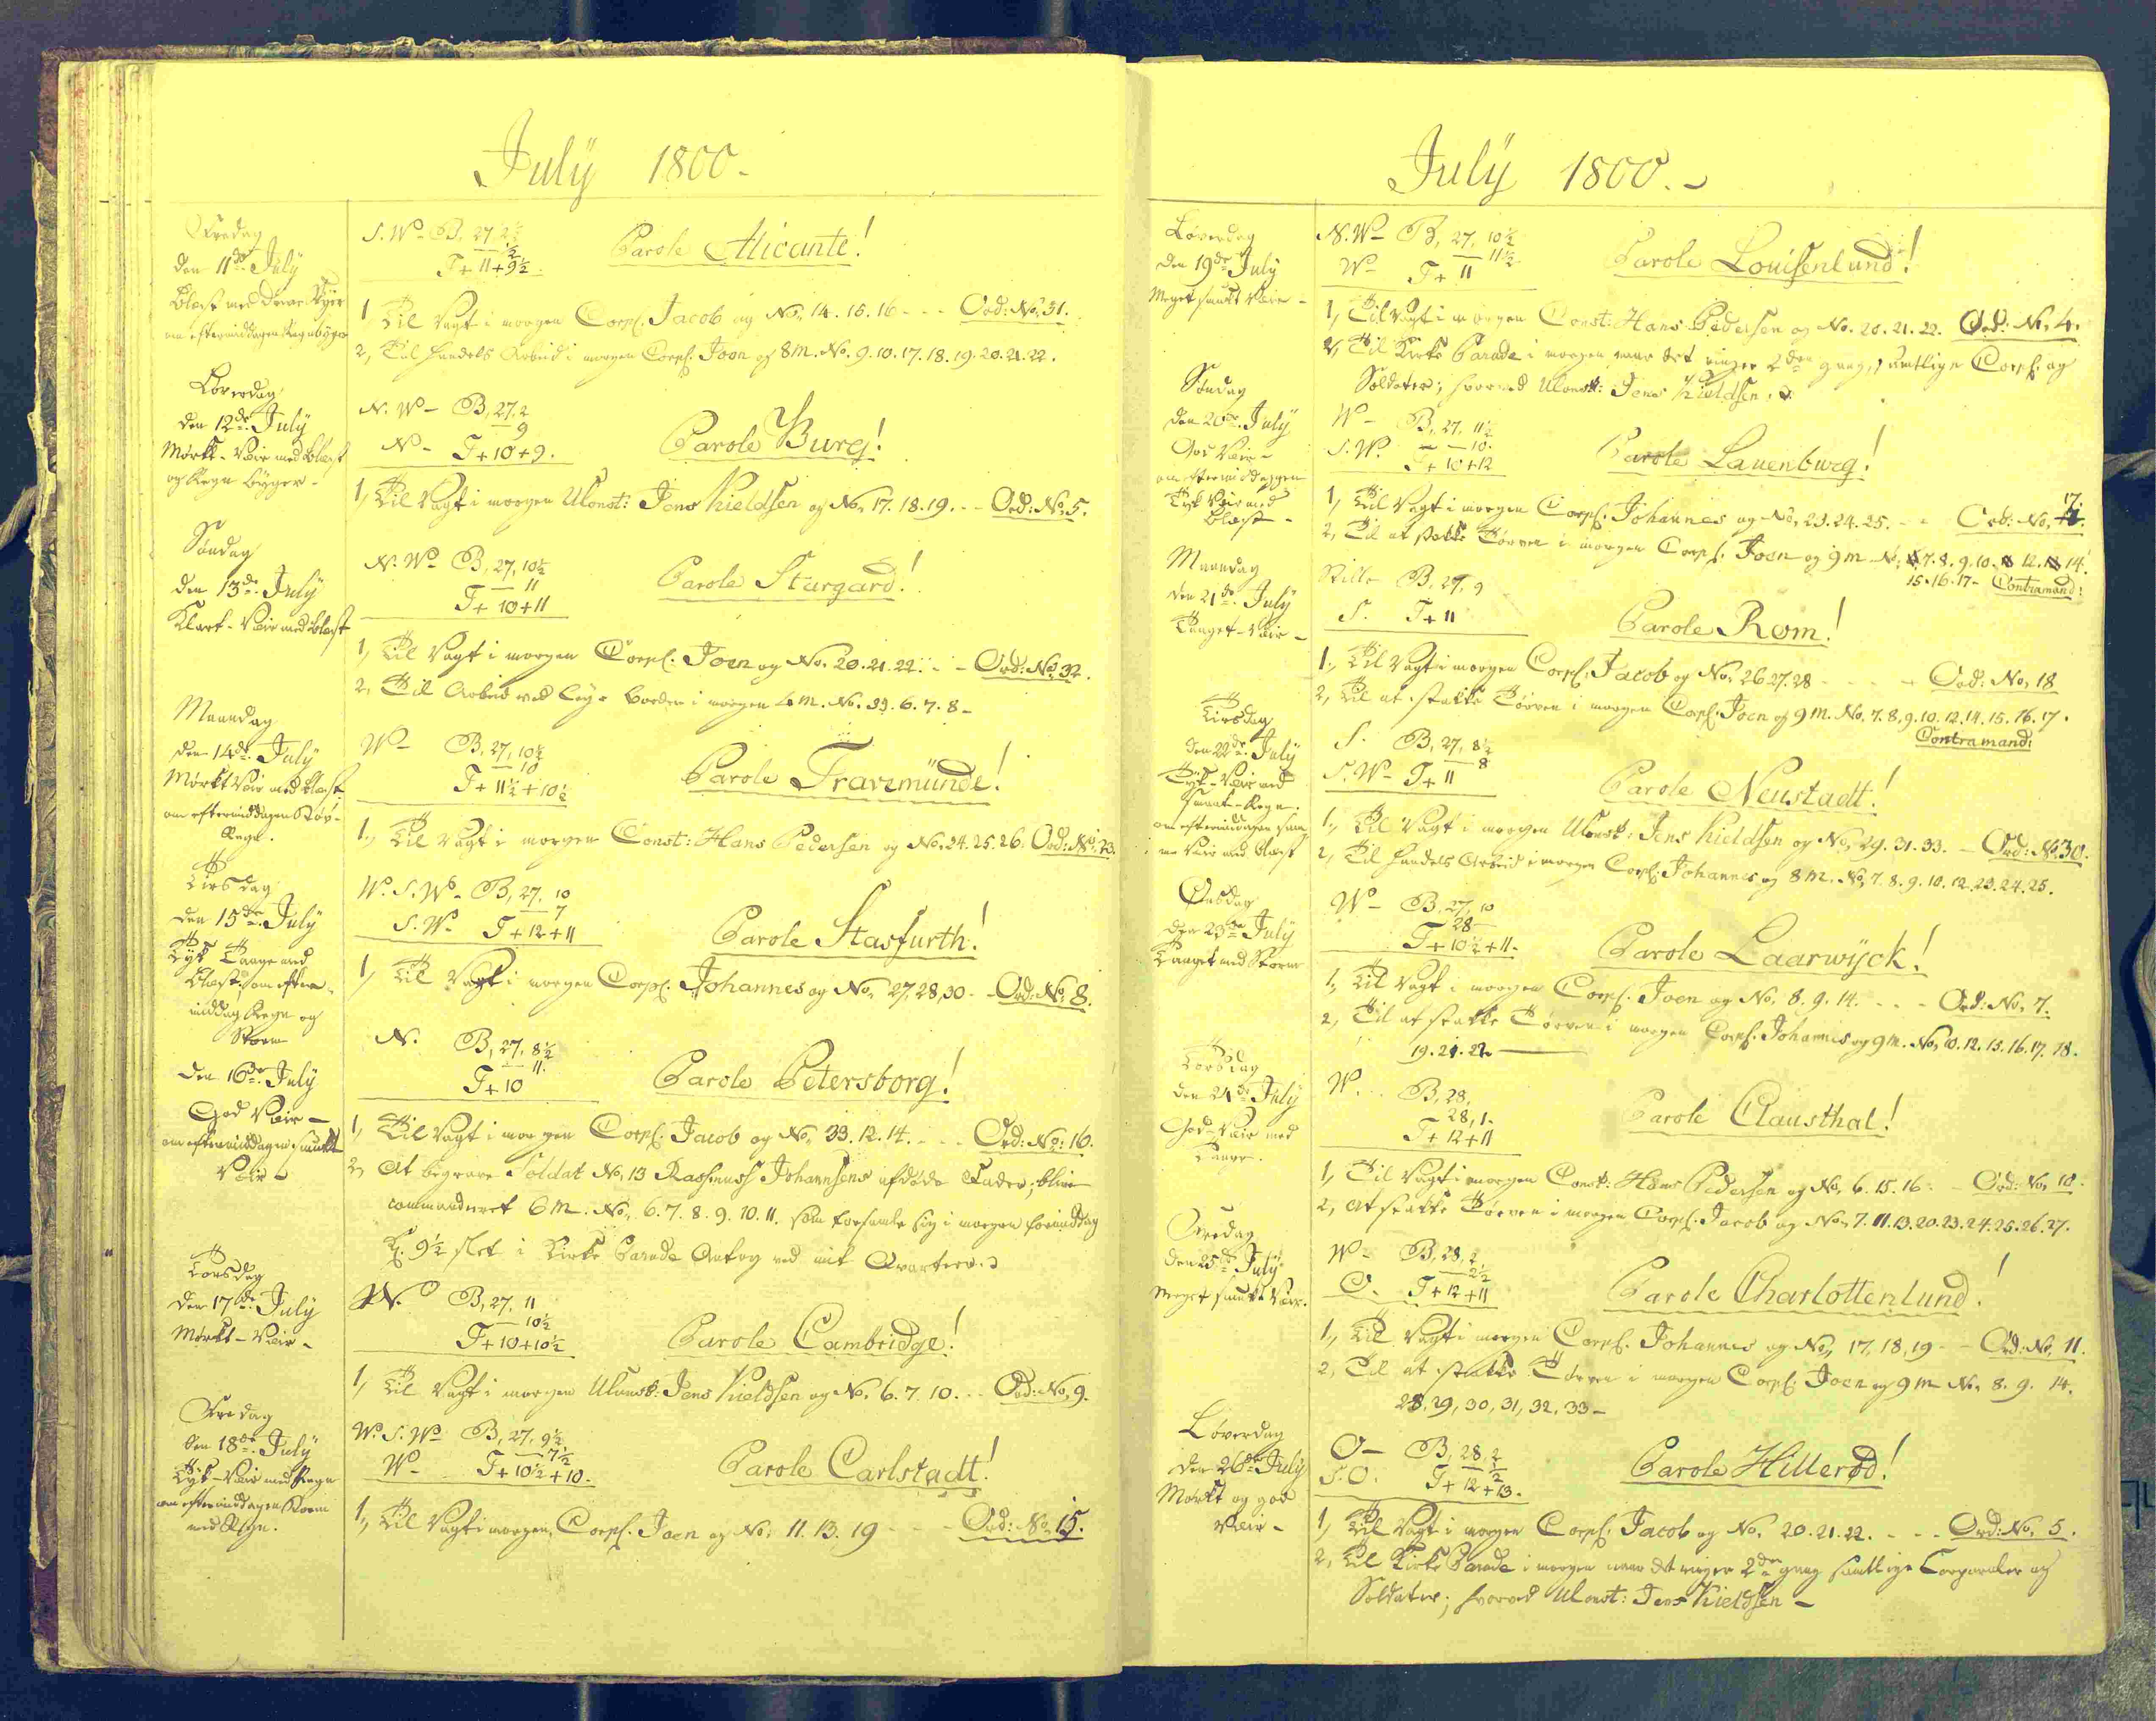 July 1800.
Fredag
den 11de July
Blæst med Drivende Skyer
om eftermiddagen Regnbyger
S.W. B, 27, 2½
½
T+11+9½.
Parole Alicante!
1, Til Vagt i morgen Corpl. Jacob og No. 14. 15. 16 - - - Ord: No. 31.
2, Til Handels Arbeid i morgen Corpl. Joen og 8 M. No. 9. 10. 17. 18. 19. 20. 21. 22.
Löverdag
den 12de July
Mørkt-Veir med Blæst
og Regn byger -
N. W- B, 27, 2
9
N- T+10+9.
Parole Burg!
1, Til Vagt i morgen UConst: Jens Kieldsen og No. 17. 18. 19. - - Ord: No. 5.
Søndag
den 13de July
Klart-Veir med Blæst
N. W- B, 27, 10½
11
T+10+11
Parole Stargard!
1, Til Vagt i morgen Corpl. Joen og No. 20. 21. 22. - - Ord: No. 32.
2, Til Arbeid ved i morgen 4 M. No. 33. 6. 7. 8 -
Maandag
den 14de July
Mørkt Veir med Blæst
om eftermiddagen Støv-
Regn.
W- B, 27, 10½
10
T+11½+10½
Parole Travemünde!
1, Til Vagt i morgen Const: Hans Pedersen og No. 24. 25. 26. Ord: No. 23.
Tirsdag
den 15de July
Tyk Taage med
Blæst, om efter-
middag Regn og
Storm
W. S. W- B, 27, 10
7
S. W- T+12+11
Parole Stasfurth!
1, Til Vagt i morgen Corpl. Johannes og No. 27, 28, 30 - Ord: No. 8.
den 16de July
God Veir -
om eftermiddagen smukt
Veir -
N. B, 27, 8½
11.
T+10
Parole Petersborg!
1, Til Vagt i morgen Corpl. Jacob og No. 33. 12. 14. - - - Ord: No: 16.
2, At begrave Soldat No. 13 Rasmus Johannsens afdøde Fader; blive
commanderet 6 M. No. 6. 7. 8. 9. 10. 11. som forsamle sig i morgen formiddag
Kl. 9½ slet i Kirke Parade Antog ved mit Qvarteer.
Torsdag
den 17de July
Mørkt-Veir -
N. B, 27, 11
10½
T+10+10½
Parole Cambridge!
1, Til Vagt i morgen UConst: Jens Kieldsen og No. 6. 7. 10. - - Ord: No. 9.
Fredag
den 18de July
Tyk-Veir med Regn
om eftermiddagen Storm
med Regn.
W. S. W- B, 27, 9½
7½
W- T+10½+10.
Parole Carlstadt!
1, Til Vagt i morgen, Corpl. Joen og No. 11. 13. 19 - - - Ord: No. 15.
July 1800.
Løverdag
den 19de July
Meget smukt Veir -
N. W- B, 27, 10½
11½.
W- T+11
Parole Louisenlund!
1, Til Vagt i morgen Const: Hans Pedersen og No. 20. 21. 22. Ord: No. 4.
2, Til Kirke Parade i morgen naar det ringer 2den gang, samtlige Corpl. og
Soldater; hvorved UConst: Jens Kieldsen.
Søndag
den 20de July
God Veir -
om eftermiddagen
Tyk Veir med
Blæst -
W- B, 27, 11½
10.
S. W. T+10+12
Parole Lauenburg!
1, Til Vagt i morgen Corpl. Johannes og No. 23. 24. 25. - - Ord: No. 17.
2, Til at stakke Tørven i morgen Corpl. Joen og 9 M. No. 7. 8. 9. 10. 12. 14.
15. 16. 17 - Contramand:
Maandag
den 21de July
Taaget-Veir -
Stille B, 27, 9
S. T+11
Parole Rom!
1, Til Vagt i morgen Corpl. Jacob og No. 26 27. 28 - - - - Ord: No. 18
2, Til at stakke Tørven i morgen Corpl. Joen og 9 M. No. 7. 8. 9. 10. 12. 14. 15. 16. 17.
Contramand:
Tirsdag
den 22de July
Tyk-Veir med
Smaat-Regn.
om eftermiddagen sam-
me Veir med Blæst
S. B, 27, 8½
8
S. W- T+11
Parole Neustadt!
1, Til Vagt i morgen UConst: Jens Kieldsen og No. 29. 31. 33. - Ord: No. 30.
2, Til Handels Arbeid i morgen Corpl. Johannes og 8 M. No. 7. 8. 9. 10. 12. 23. 24. 25.
Onsdag
den 23de July
Taaget med Storm
W- B, 27, 10
28
T+10½+11.
Parole Laarwyck!
1, Til Vagt i morgen Corpl. Joen og No. 8. 9. 14. - - - Ord: No. 7.
2, Til at stakke Tørven i morgen Corpl. Johannes og 9 M. No. 10. 12. 15. 16. 17. 18.
19. 21. 22.
Torsdag
den 24de July
God-Veir med
Taage.
W. B, 28,
28, 1.
T+12+11
Parole Clausthal!
1, Til Vagt i morgen Const: Hans Pedersen og No. 6. 15. 16. - Ord: No. 10.
2, at stakke Tørven i morgen Corpl. Jacob og No. 7. 11. 13. 20. 23. 24. 25. 26. 27.
Fredag
den 25de July
Meget smukt Veir.
W- B, 28, 2
2½
O. T+12+11
Parole Charlottenlund!
1, Til Vagt i morgen Corpl. Johannes og No. 17, 18, 19 - - Ord: No. 11.
2, Til at stakke Tørven i morgen Corpl. Joen og 9 M No. 8. 9. 14.
28, 29, 30, 31, 32, 33 -
Løverdag
den 26de July
Mørkt og god
Veir -
O- B, 28, 2
½
S. O. T+12+13.
Parole Hillerød!
1, Til Vagt i morgen Corpl. Jacob og No. 20. 21. 22. - - - Ord: No. 5.
2, Til Kirke Parade i morgen naar det ringer 2den gang samtlige Corporaler og
Soldater; hvorved UConst: Jens Kieldsen -